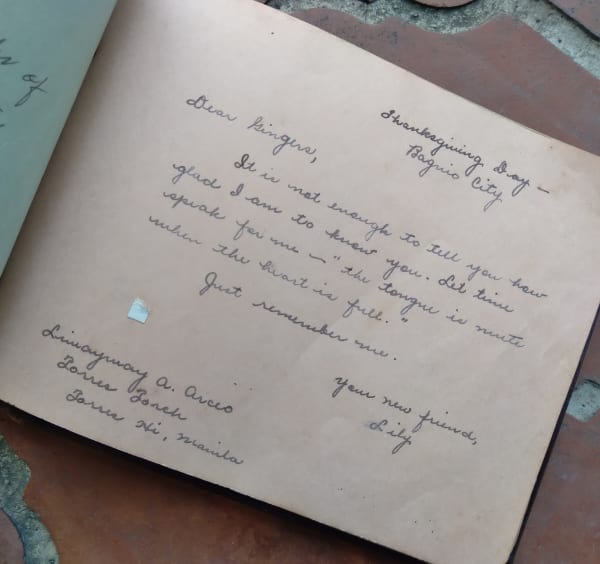 Thanksgiving Day —
Baguio City
Dear Gingers,
It is not enough to tell you how
glad I am to know you. Let time
speak for me — "the tongue is mute
when the heart is full."
Just remember me.
Your new friend,
Lily
Limaymay A. Arceo
Torres Torch
Torres Hi, Manila
of